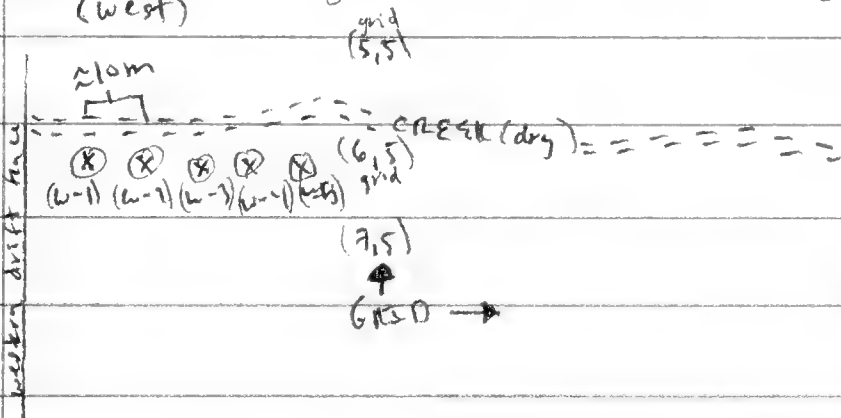 (west)
grid
(5,5)
≈10m
CREEK (dry)
(6,5)
grid
(w-1) (w-2) (w-3) (w-4) (w-5)
(7,5)
GRID →
western drift